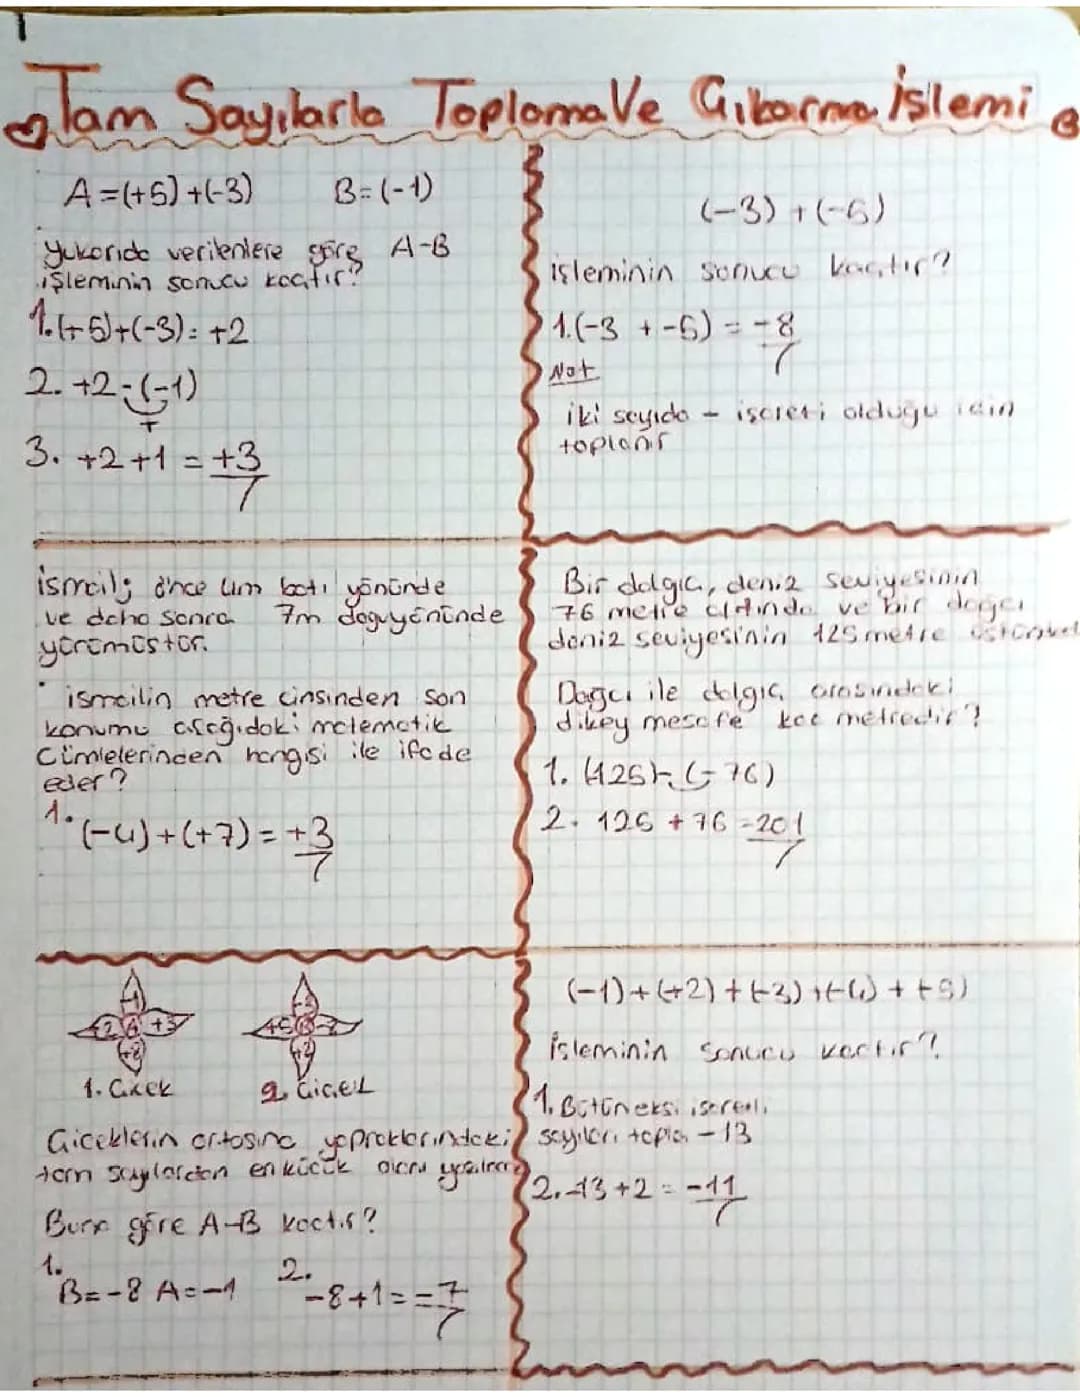 Tam Sayılarla Toplama Ve Çıkarma İşlemi
A=(+5)+(-3) B=(-1)
Yukarıda verilenlere göre A-B
işleminin sonucu kaçtır?
1.(+5)+(-3)=+2
2. +2-(-1)
+
3. +2+1=+3
(-3)+(-5)
işleminin sonucu kaçtır?
1.(-3 + -5) = -8
Not
iki sayıda - işareti olduğu için
toplanır
ismail; önce 4m batı yönünde
ve daha sonra 7m doğu yönünde
yürümüştür.
ismailin metre cinsinden son
konumu aşağıdaki matematik
Cümlelerinden hangisi ile ifade
eder?
1. (-4)+(+7)=+3
Bir dalgıç, deniz seviyesinin
76 metre altında ve bir dağcı
deniz seviyesinin 125 metre
Dağcı ile dalgıç arasındaki
dikey mesafe kaç metredir?
1. (125)-(-76)
2. 125+76=201
1. Çiçek 2. Çiçek
Çiçeklerin ortasına yapraklarındaki
tam sayılardan en küçük olanı
Buna göre A-B kaçtır?
1. B=-8 A=-1 2. -8+1==7
(-1)+(+2)+(-3)+(-4)+(-5)
İşleminin sonucu kaçtır?
1. Bütün eksi işaretli
sayıları topla -13
2. -13+2=-11